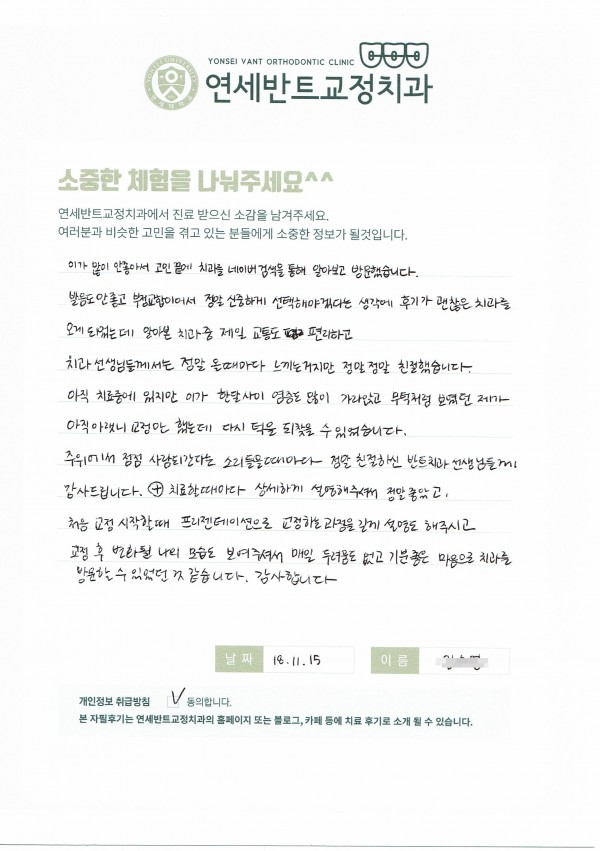 YONSEI VANT ORTHODONTIC CLINIC
연세반트교정치과
소중한 체험을 나눠주세요^^
연세반트교정치과에서 진료 받으신 소감을 남겨주세요.
여러분과 비슷한 고민을 겪고 있는 분들에게 소중한 정보가 될것입니다.
이가 많이 안좋아서 고민 끝에 치과를 네이버 검색을 통해 알아보고 방문했습니다.
발음도 안좋고 부정교합이어서 정말 신중하게 선택해야겠다는 생각에 후기가 괜찮은 치과를
오게 되었는데 알아본 치과중 제일 교통도 편리하고
치과 선생님들께서는 정말 올때마다 느끼는거지만 정말정말 친절했습니다.
아직 치료중에 있지만 이가 한달사이 염증도 많이 가라앉고 무턱처럼 보였던 제가
아직 아랫니 교정만 했는데 다시 턱을 되찾을 수 있었습니다.
주위에서 점점 사랑니간다는 소리들을때마다 정말 친절하신 반트치과 선생님들께
감사드립니다. ⊕ 치료할때마다 상세하게 설명해주셔서 정말 좋았고,
처음 교정 시작할때 프리젠테이션으로 교정하는 과정을 길게 설명도 해주시고
교정 후 변화될 나의 모습도 보여주셔서 매일 두려움도 없고 기분좋은 마음으로 치과를
방문할 수 있었던 것 같습니다. 감사합니다
날 짜 18.11.15 이 름
개인정보 취급방침 V 동의합니다.
본 자필후기는 연세반트교정치과의 홈페이지 또는 블로그, 카페 등에 치료 후기로 소개 될 수 있습니다.